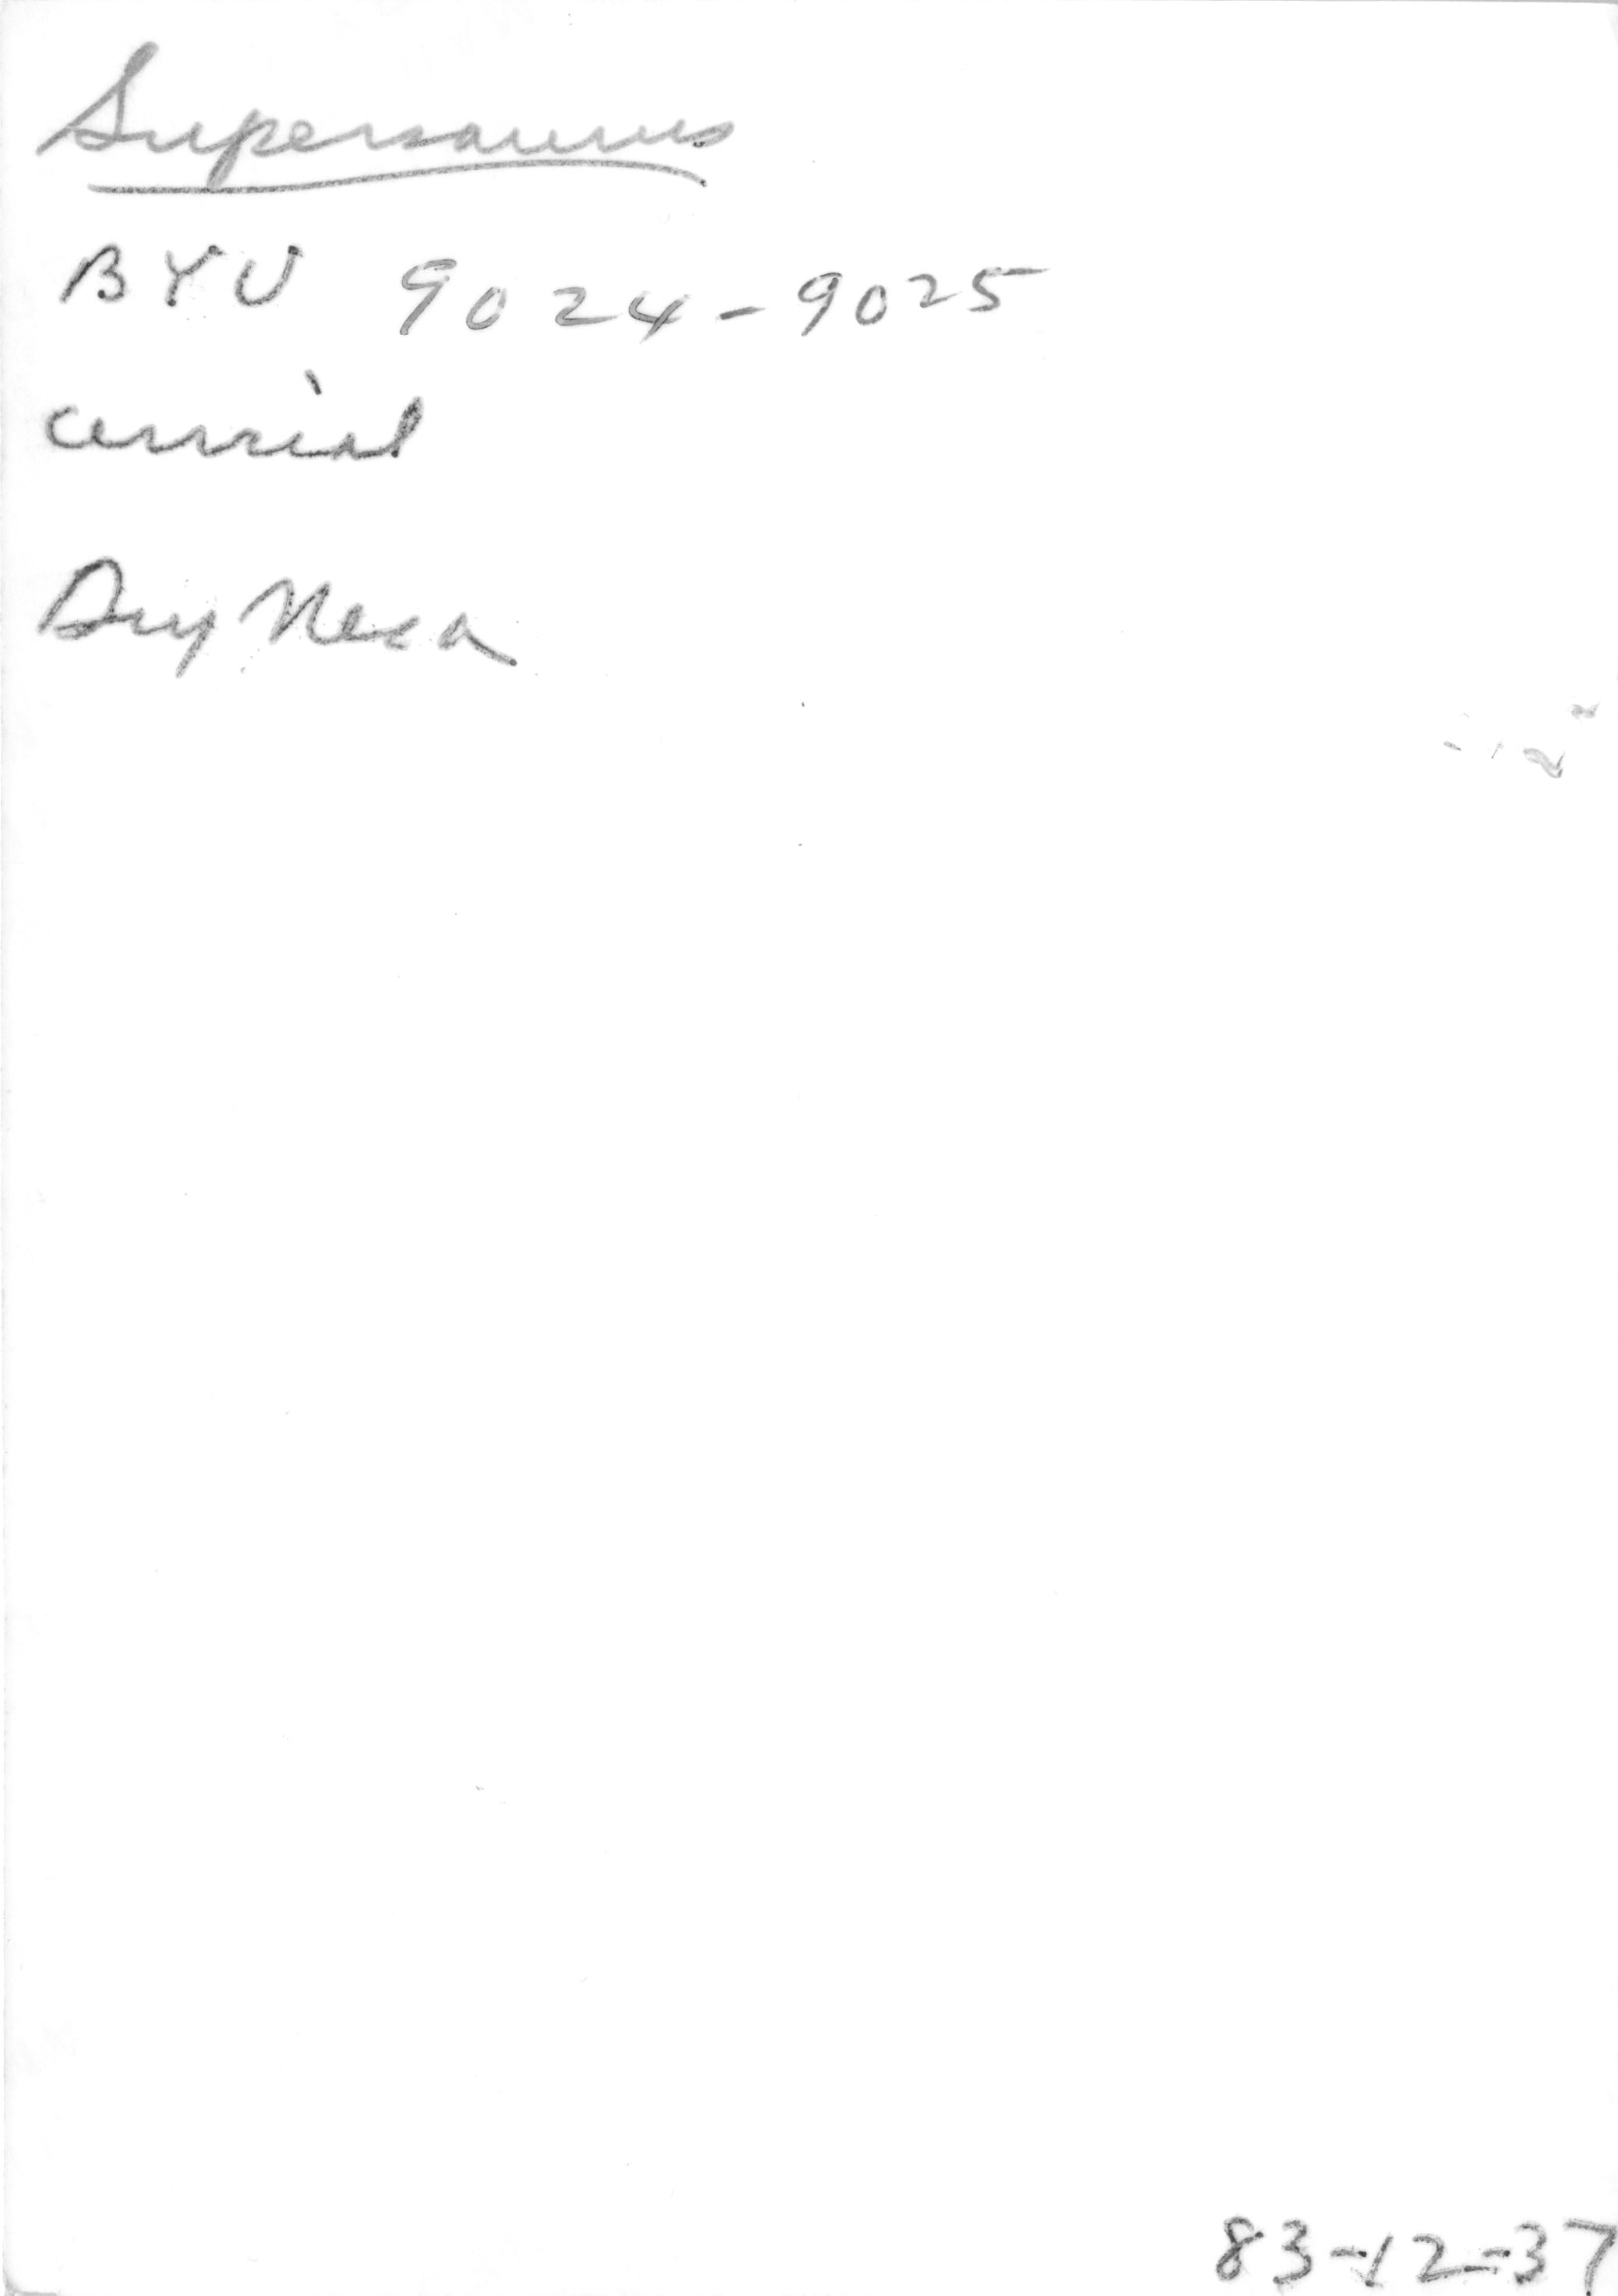 Supersaurus
BYU 9024-9025
cervical
Dry Mesa
83-12-37